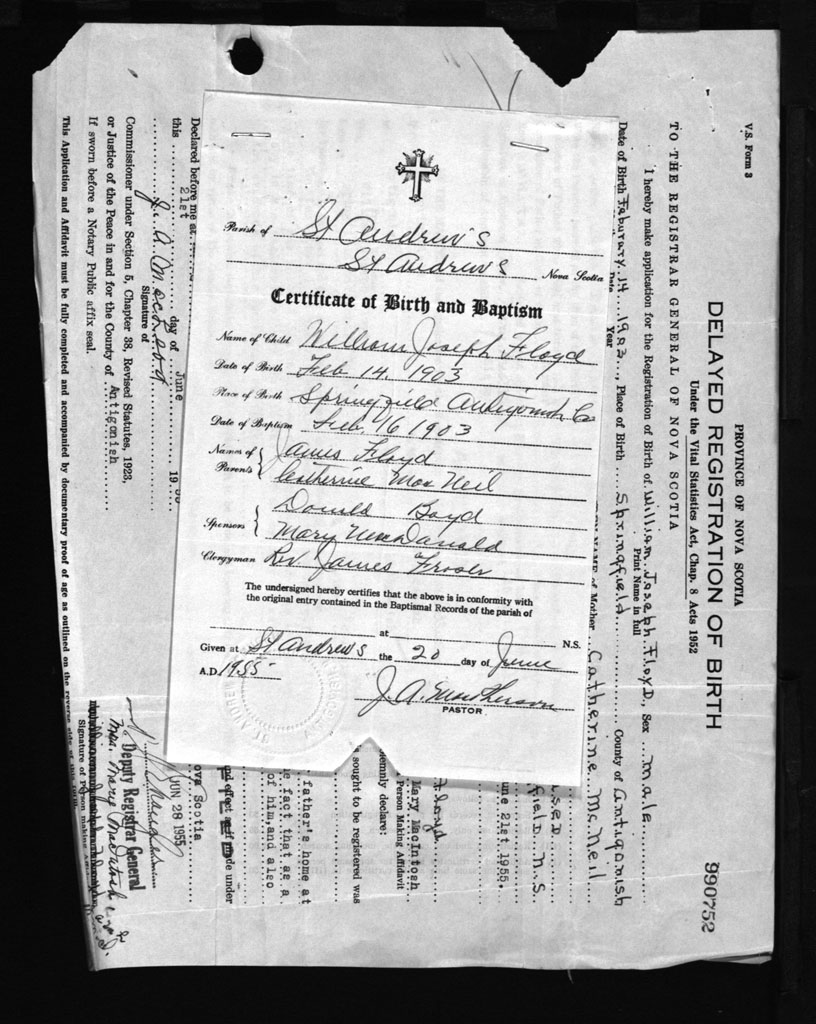 Parish of St Andrew's
St Andrews Nova Scotia
Certificate of Birth and Baptism
Name of Child William Joseph Floyd
Date of Birth Feb 14. 1903
Place of Birth Springfield Antigonish Co
Date of Baptism Feb. 16 1903
Names of Parents James Floyd
Catherine MacNeil
Sponsors Donald Boyd
Mary MacDonald
Clergyman Rev James Fraser
The undersigned hereby certifies that the above is in conformity with
the original entry contained in the Baptismal Records of the parish of
at N.S.
Given at St Andrews the 20 day of June
A.D. 1955
J. A.
PASTOR
V.S. Form 3
PROVINCE OF NOVA SCOTIA
DELAYED REGISTRATION OF BIRTH
990752
Under the Vital Statistics Act, Chap. 8 Acts 1952
TO THE REGISTRAR GENERAL OF NOVA SCOTIA
I hereby make application for the Registration of Birth of William Joseph Floyd, Sex male
Print Name in full
Date of Birth February 14 1903 Place of Birth Springfield County of Antigonish
Year
NAME of Mother Catherine McNeil
field N.S.
une 21st, 1955.
Mary MacIntosh
Person Making Affidavit
lemnly declare:
Floyd
s sought to be registered was
father's home at
e fact that as a
of him, and also
made under
ova Scotia
Declared before me at
this 21st day of June 19
J. A. MacLeod
Signature of
Commissioner under Section 5, Chapter 38, Revised Statutes, 1923,
or Justice of the Peace in and for the County of Antigonish
If sworn before a Notary Public affix seal.
JUN 28 1955
Deputy Registrar General
Mrs. Mary MacIntosh
Signature of Person making
This Application and Affidavit must be fully completed and accompanied by documentary proof of age as outlined on the reverse side of this form.